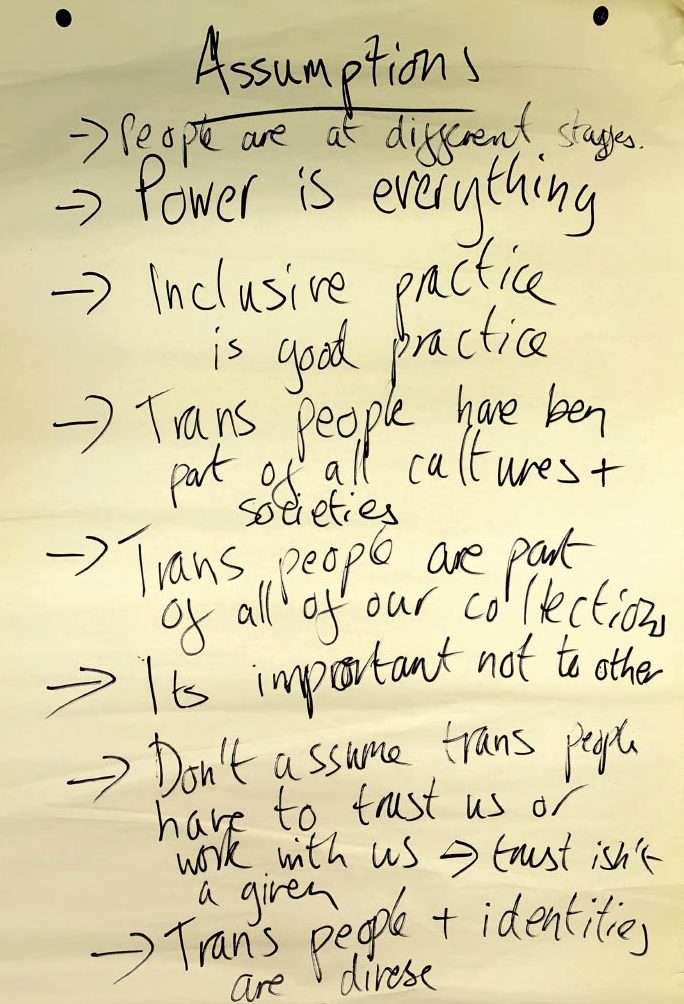 Assumptions
→ People are at different stages.
→ Power is everything
→ Inclusive practice
is good practice
→ Trans people have ben
part of all cultures +
societies
→ Trans people are part
of all of our collections
→ Its important not to other
→ Don't assume trans people
have to trust us or
work with us → trust isn't
a given
→ Trans people + identities
are divese